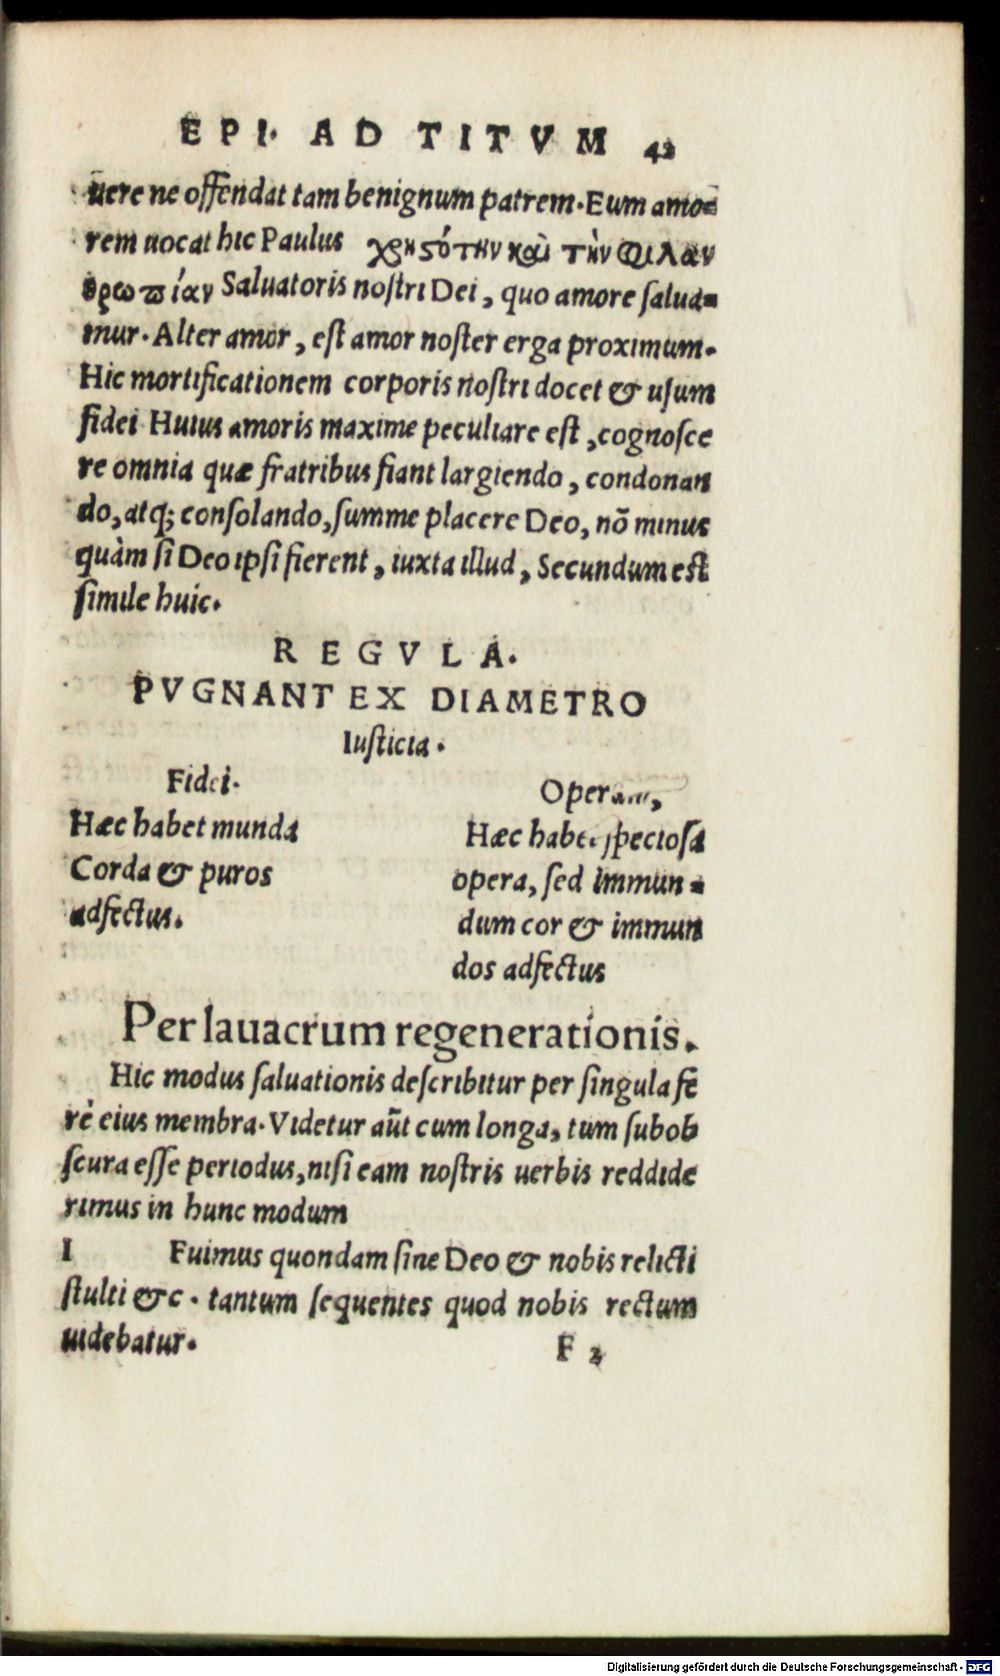 EPI. AD TITVM 42
uere ne offendat tam benignum patrem. Eum amo=
rem uocat hic Paulus χρηϛότην καὶ τὴν φιλαν
θρωπίαν Saluatoris nostri Dei, quo amore salua=
mur. Alter amor, est amor noster erga proximum.
Hic mortificationem corporis nostri docet & usum
fidei Huius amoris maxime peculiare est, cognosce
re omnia quæ fratribus fiant largiendo, condonan
do, atq; consolando, summe placere Deo, nō minus
quàm si Deo ipsi fierent, iuxta illud, Secundum est
simile huic.
REGVLA.
PVGNANT EX DIAMETRO
Iusticia.
Fidei.
Hæc habet munda
Corda & puros
adfectus.
Operum,
Hæc habet speciosa
opera, sed immun=
dum cor & immun
dos adfectus
Per lauacrum regenerationis.
Hic modus saluationis describitur per singula fe
rè eius membra. Videtur aūt cum longa, tum subob
scura esse periodus, nisi eam nostris uerbis reddide
rimus in hunc modum
I Fuimus quondam sine Deo & nobis relicti
stulti &c. tantum sequentes quod nobis rectum
uidebatur.
F 2
Digitalisierung gefördert durch die Deutsche Forschungsgemeinschaft - DFG